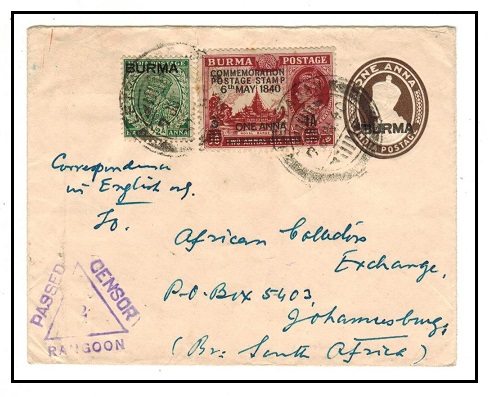 BURMA
½ ANNA
BURMA POSTAGE
COMMEMORATION
POSTAGE STAMP
6th MAY 1840
ONE ANNA
ONE ANNA
BURMA
POSTAGE
Correspondence
in English
To.
African
Exchange,
P.O. Box 5403
Johannesburg,
(Br: South Africa)
PASSED CENSOR
RANGOON